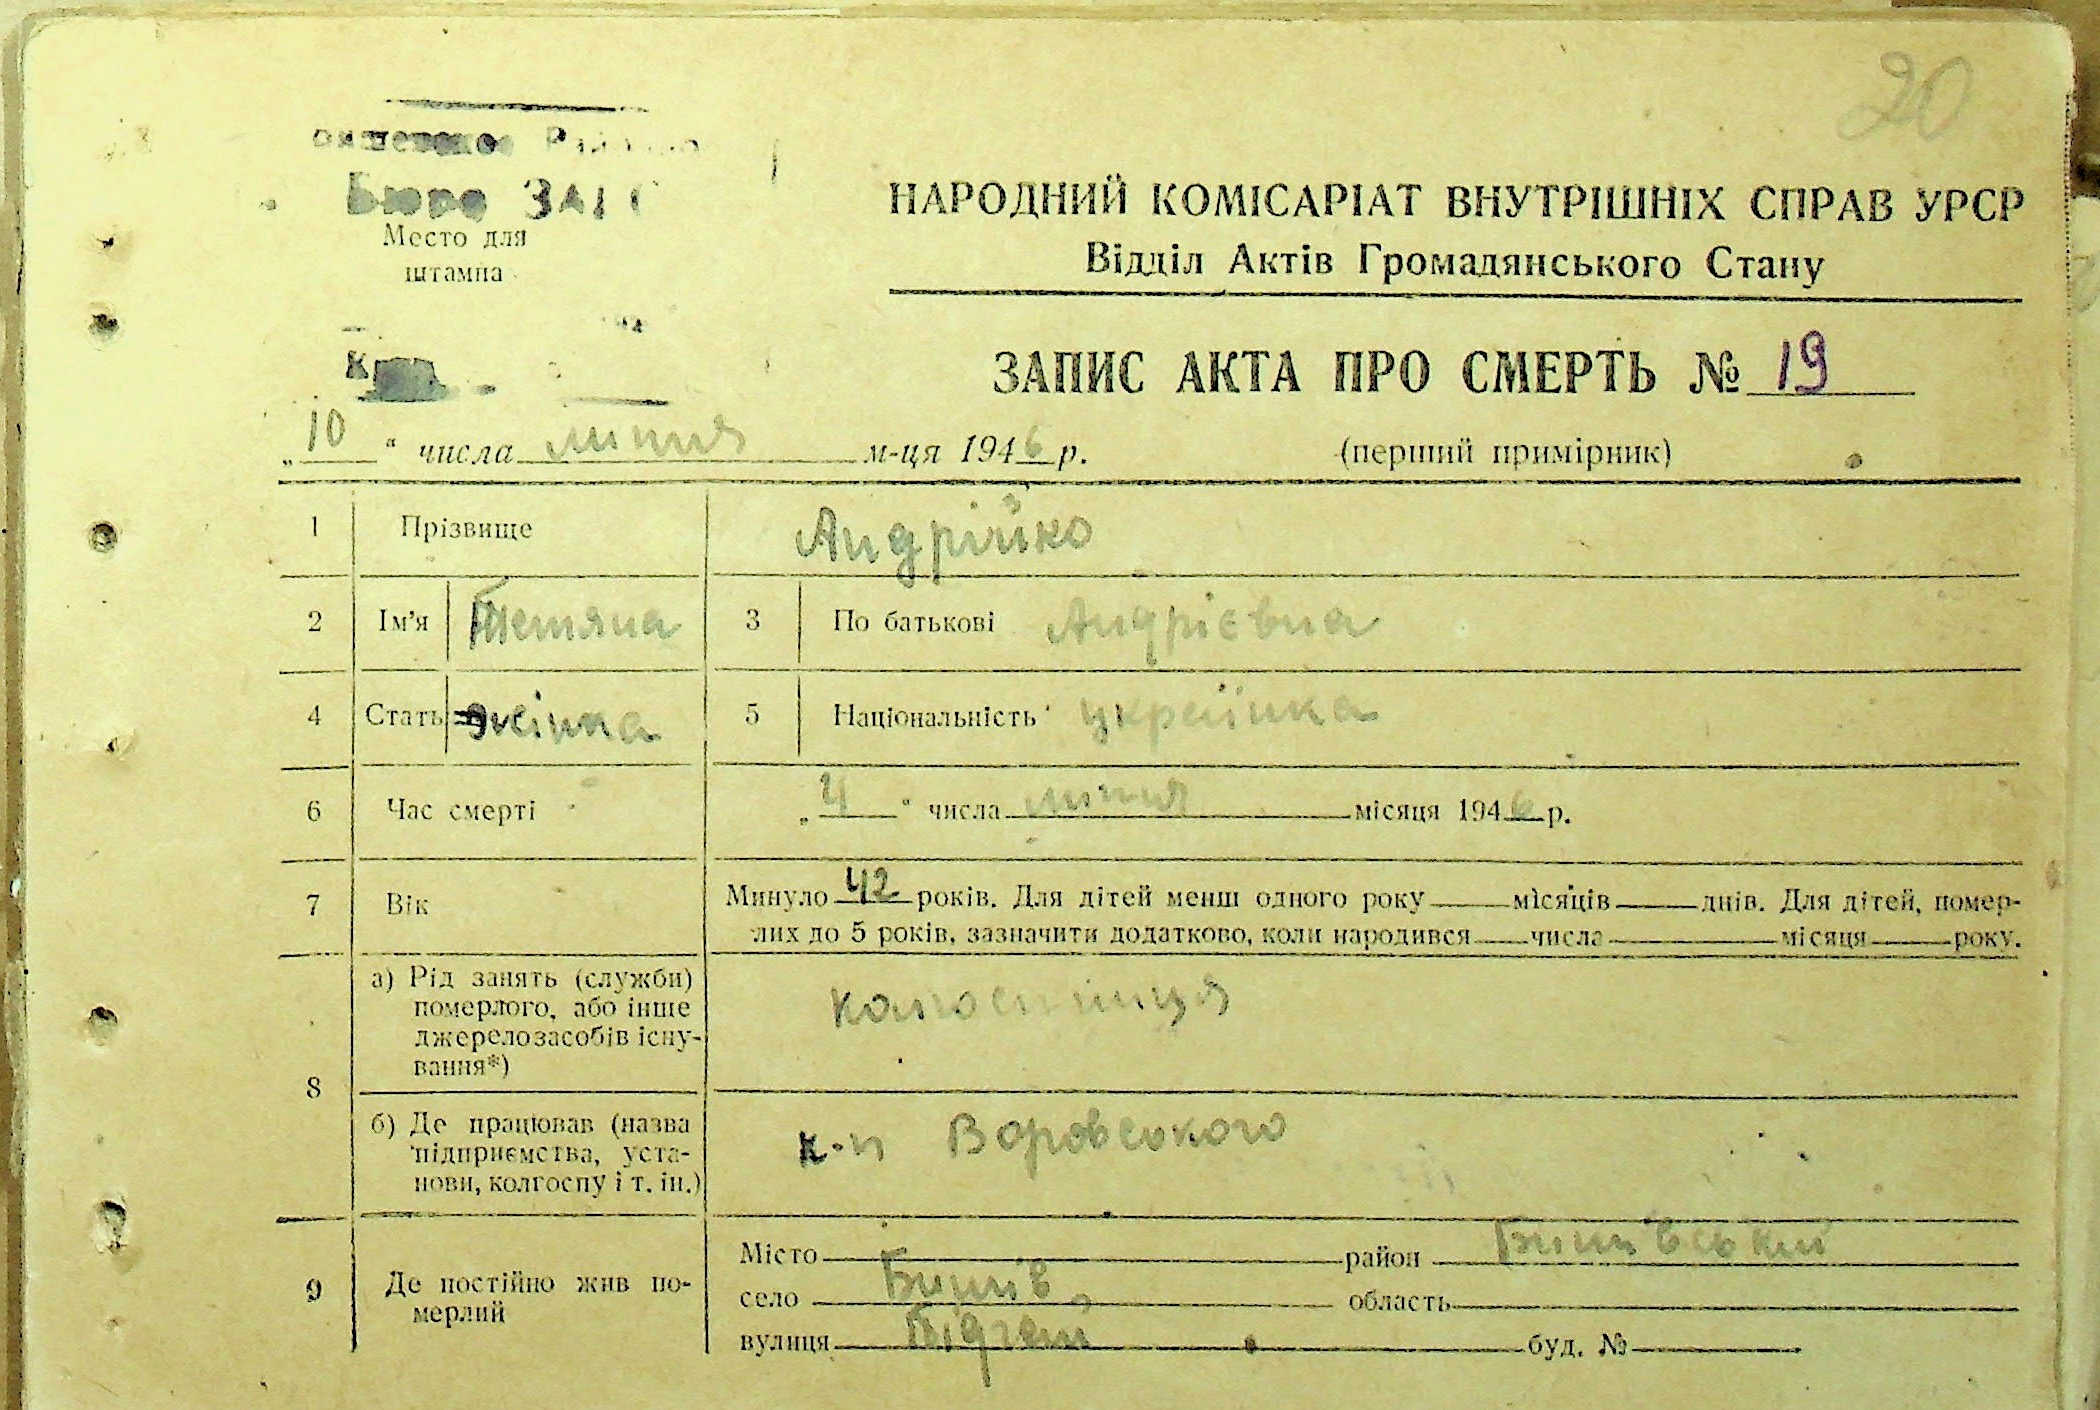 20
Бюро ЗАГС
Место для
штампа
НАРОДНИЙ КОМІСАРІАТ ВНУТРІШНІХ СПРАВ УРСР
Відділ Актів Громадянського Стану
ЗАПИС АКТА ПРО СМЕРТЬ № 19
„10“ числа липня м-ця 1946 р. (перший примірник)
1 Прізвище Андрійко
2 Ім’я Тетяна 3 По батькові Андрієвна
4 Стать жінка 5 Національність українка
6 Час смерті „4“ числа липня місяця 1946 р.
7 Вік Минуло 42 років. Для дітей менш одного року місяців днів. Для дітей, помер-
лих до 5 років, зазначити додатково, коли народився числа місяця року.
8 а) Рід занять (служби)
померлого, або інше
джерело засобів існу-
вання*)
колгоспниця
б) Де працював (назва
підприємства, уста-
нови, колгоспу і т. ін.)
к-п Воровського
9 Де постійно жив по-
мерлий
Місто район Бишівський
село Бишів область
вулиця буд. №